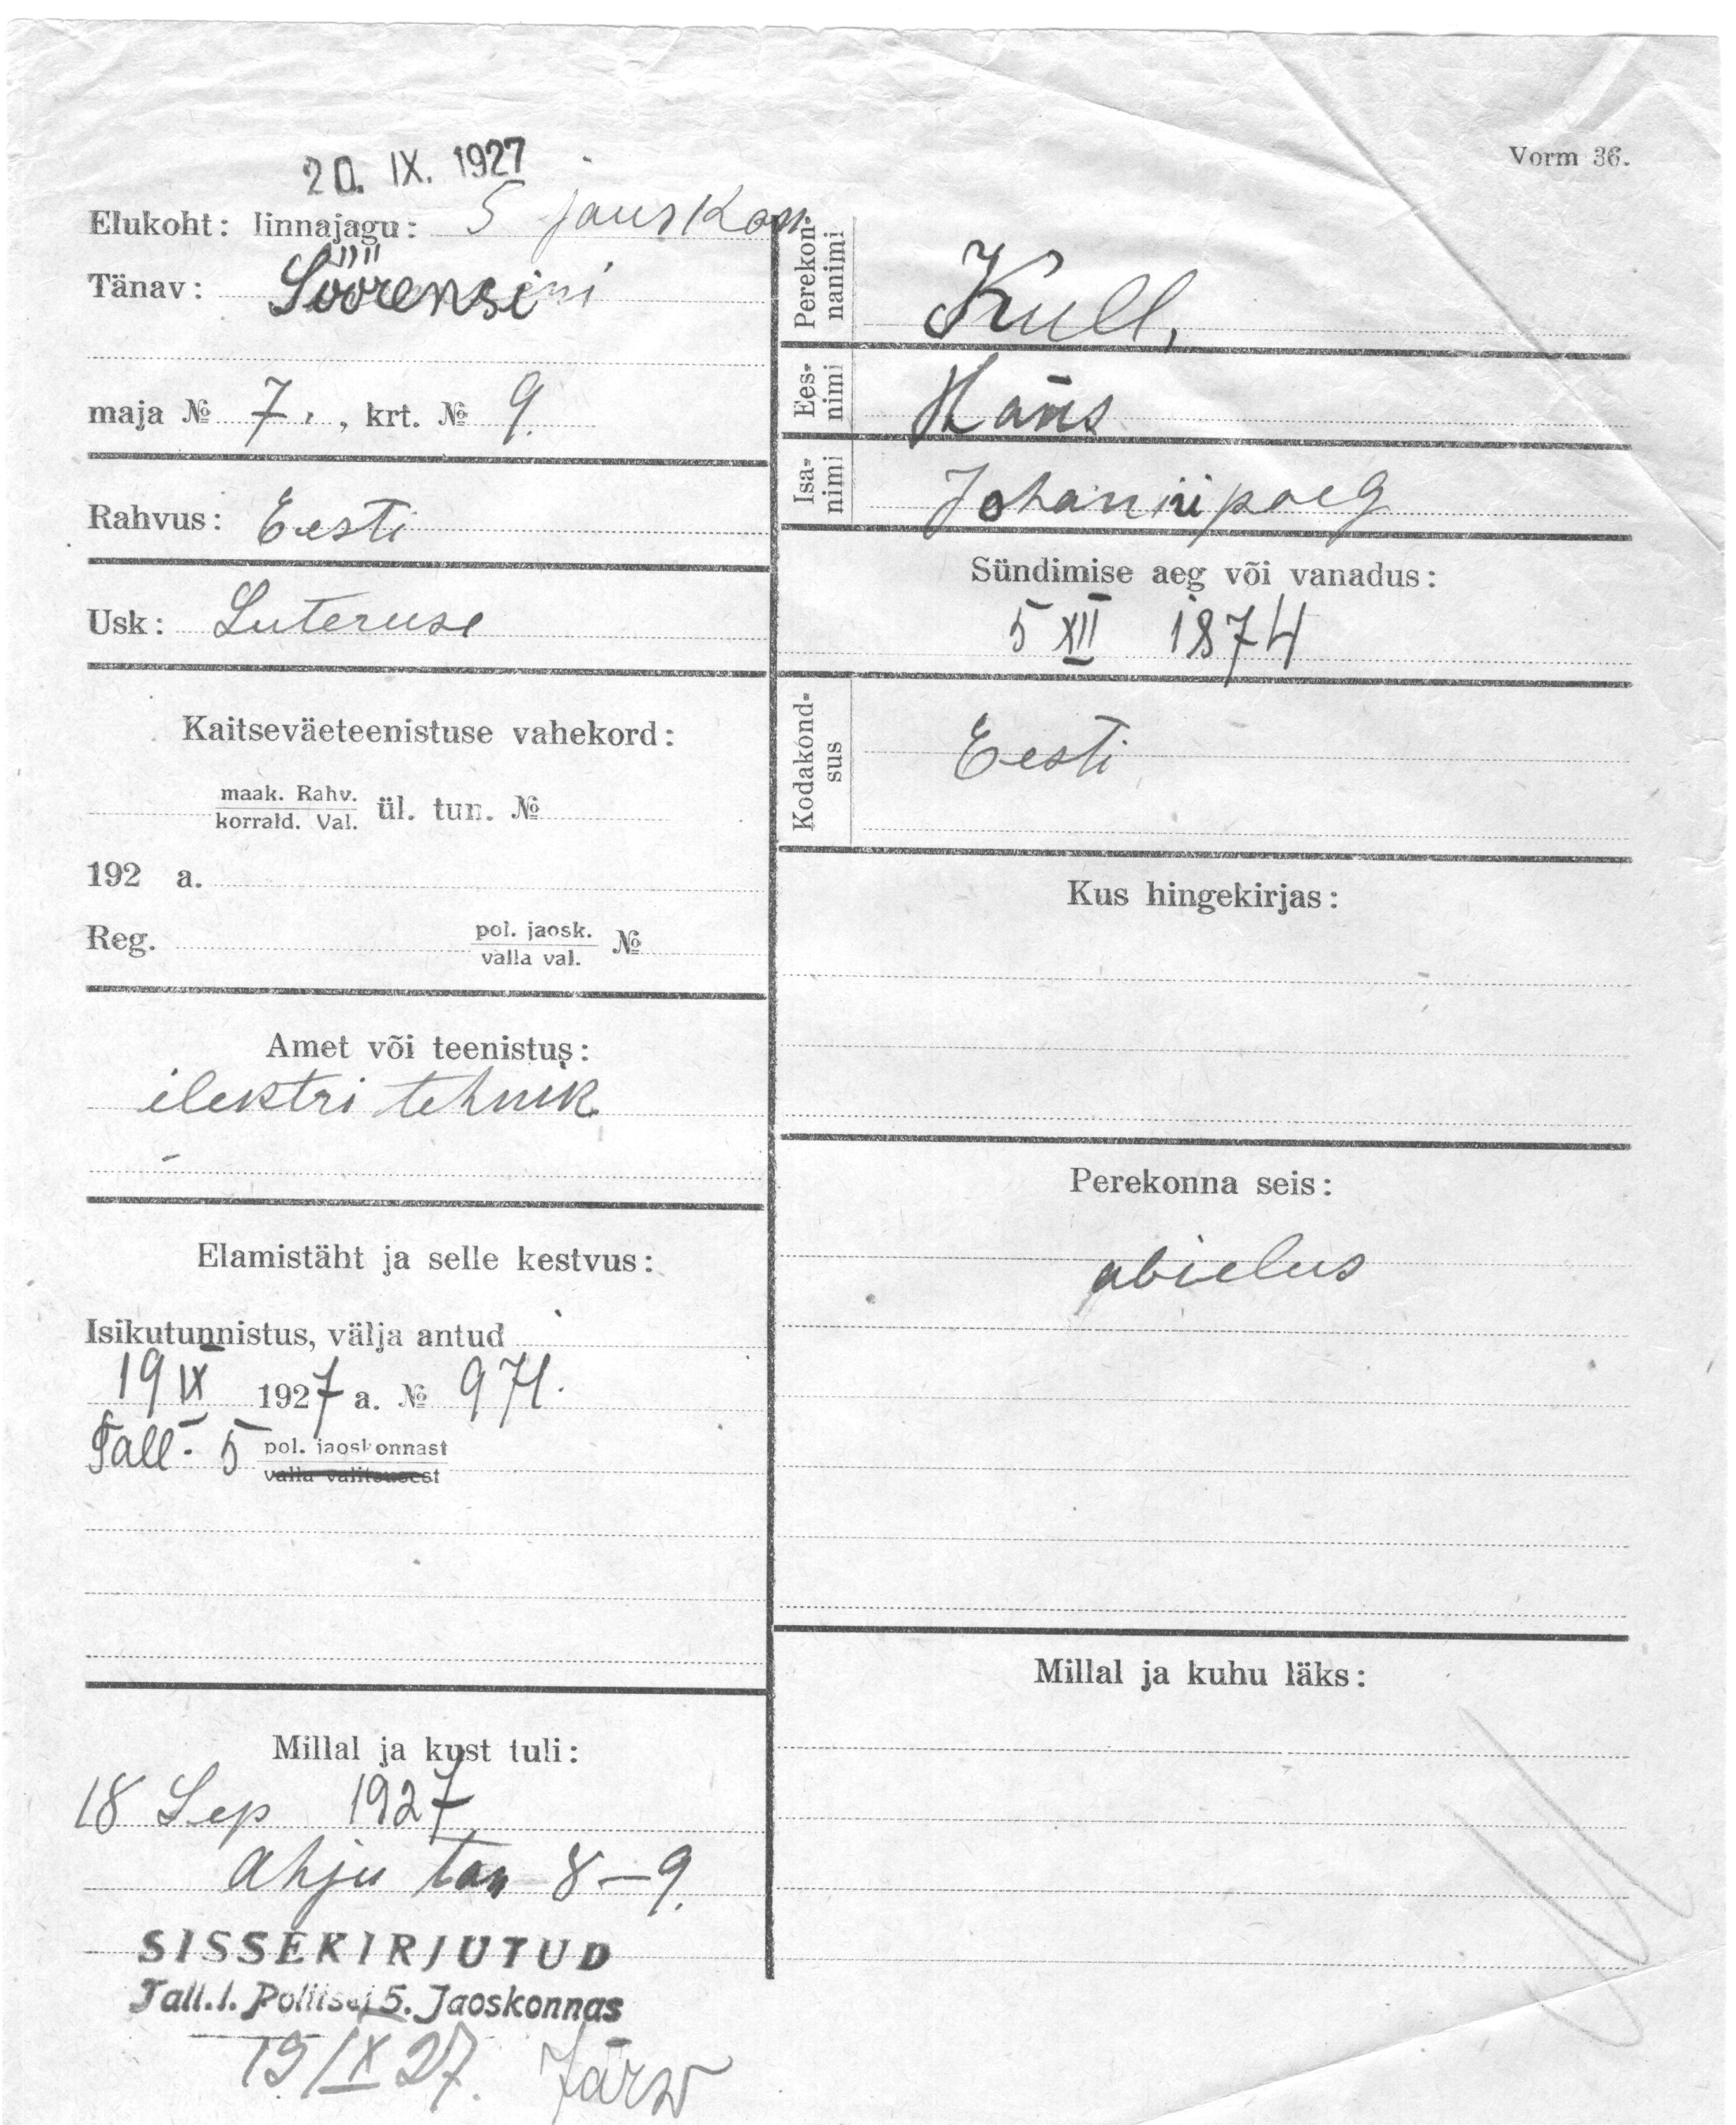 Vorm 36.
20. IX. 1927
Elukoht: linnajagu: 5 jaurskon
Tänav: Söörensini
maja № 7, krt. № 9.
Rahvus: Eesti
Usk: Luteruse
Kaitseväeteenistuse vahekord:
maak. Rahv.
korrald. Val. ül. tun. №
192 a.
Reg. pol. jaosk. №
valla val.
Amet või teenistus:
elektri tehnik
Elamistäht ja selle kestvus:
Isikutunnistus, välja antud
19 IX 1927 a. № 971.
Tall. 5 pol. jaoskonnast
valla valitsusest
Millal ja kust tuli:
18 Sep 1927
Ahju tän 8–9.
SISSEKIRJUTUD
Tall.l. Politsei 5. Jaoskonnas
19/IX 27. Järw
Perekon-
nanimi Kull,
Ees-
nimi Hans
Isa-
nimi Johannipoeg
Sündimise aeg või vanadus:
5 XII 1874
Kodakond-
sus Eesti
Kus hingekirjas:
Perekonna seis:
abielus
Millal ja kuhu läks: